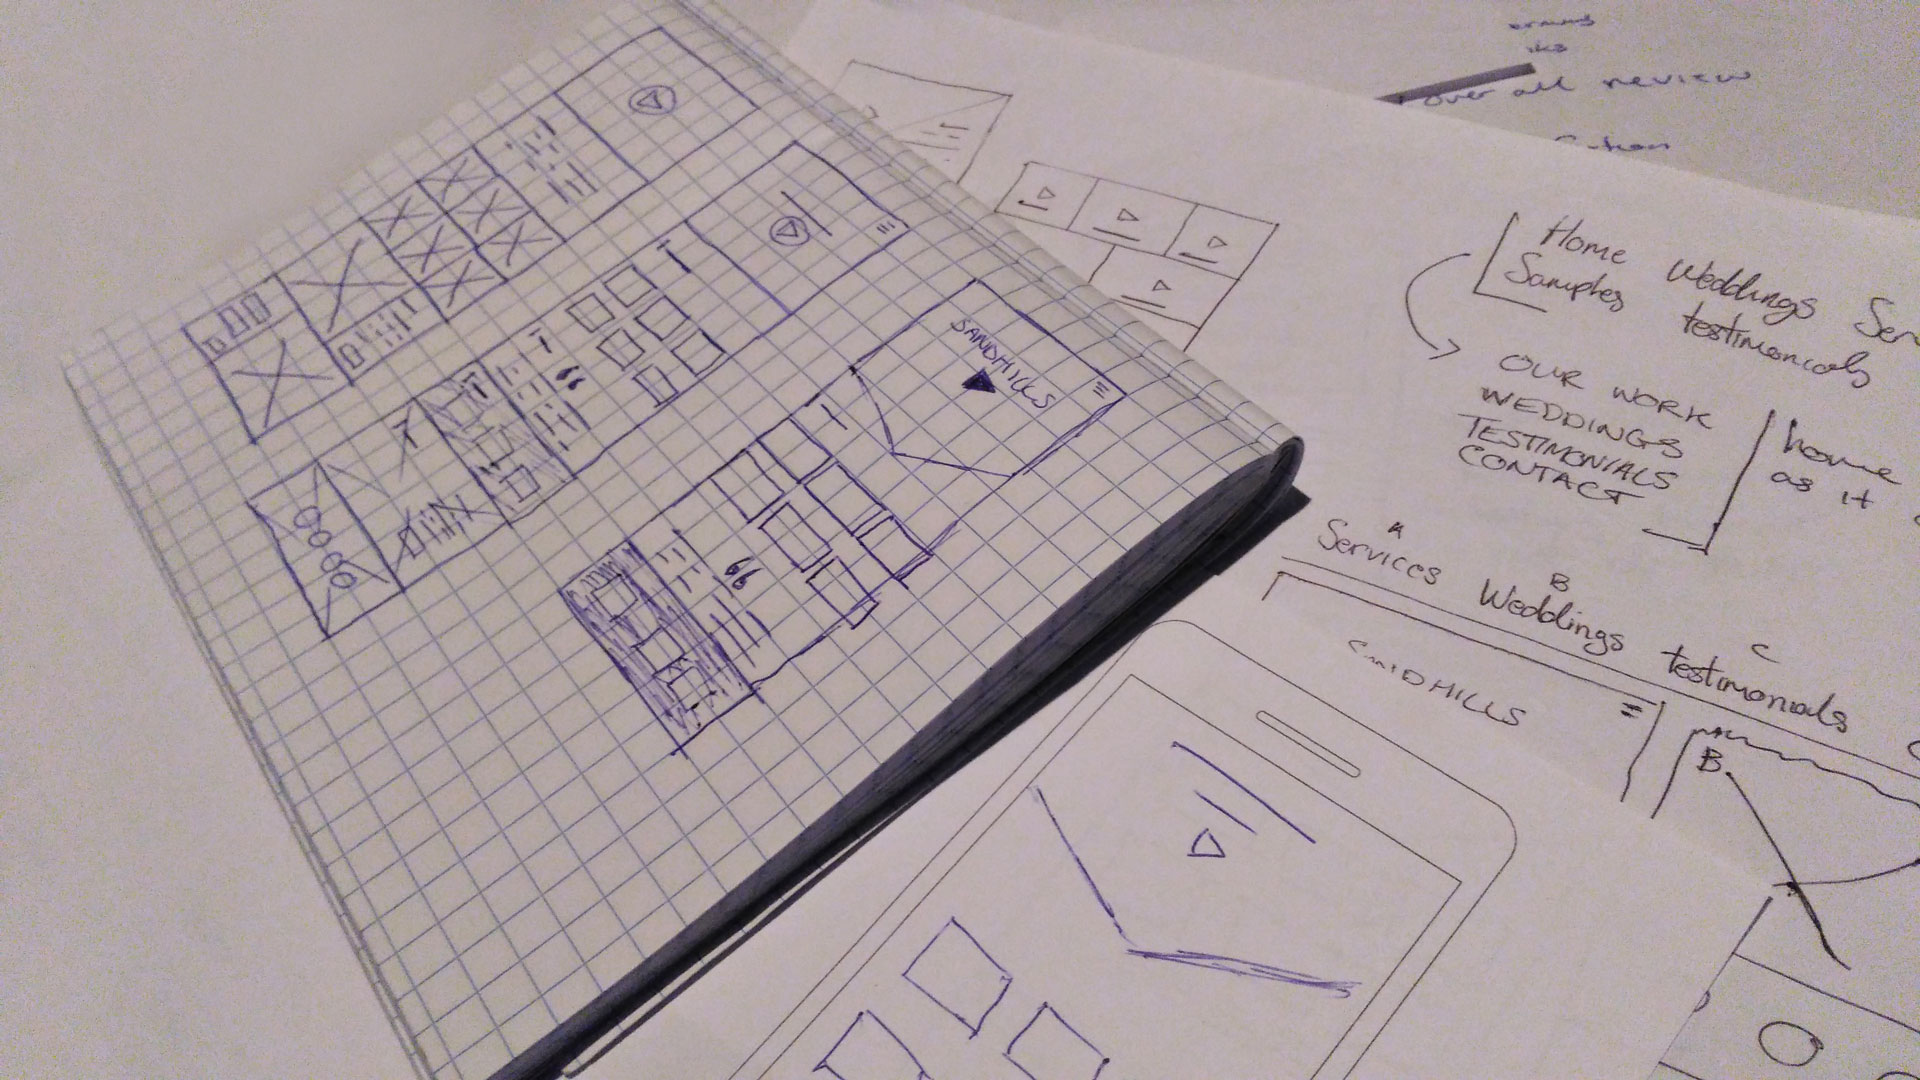 over all review
Home Weddings Ser
Samples testimonials
OUR WORK
WEDDINGS
TESTIMONIALS
CONTACT
home
as it
A
Services
B
Weddings
C
testimonials
SANDHILLS
B
SANDHILLS
66
66